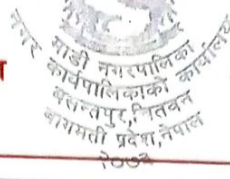 माडी नगरपालिका
नगर कार्यपालिकाको कार्यालय
बसन्तपुर,चितवन
बागमती प्रदेश,नेपाल
२०७३